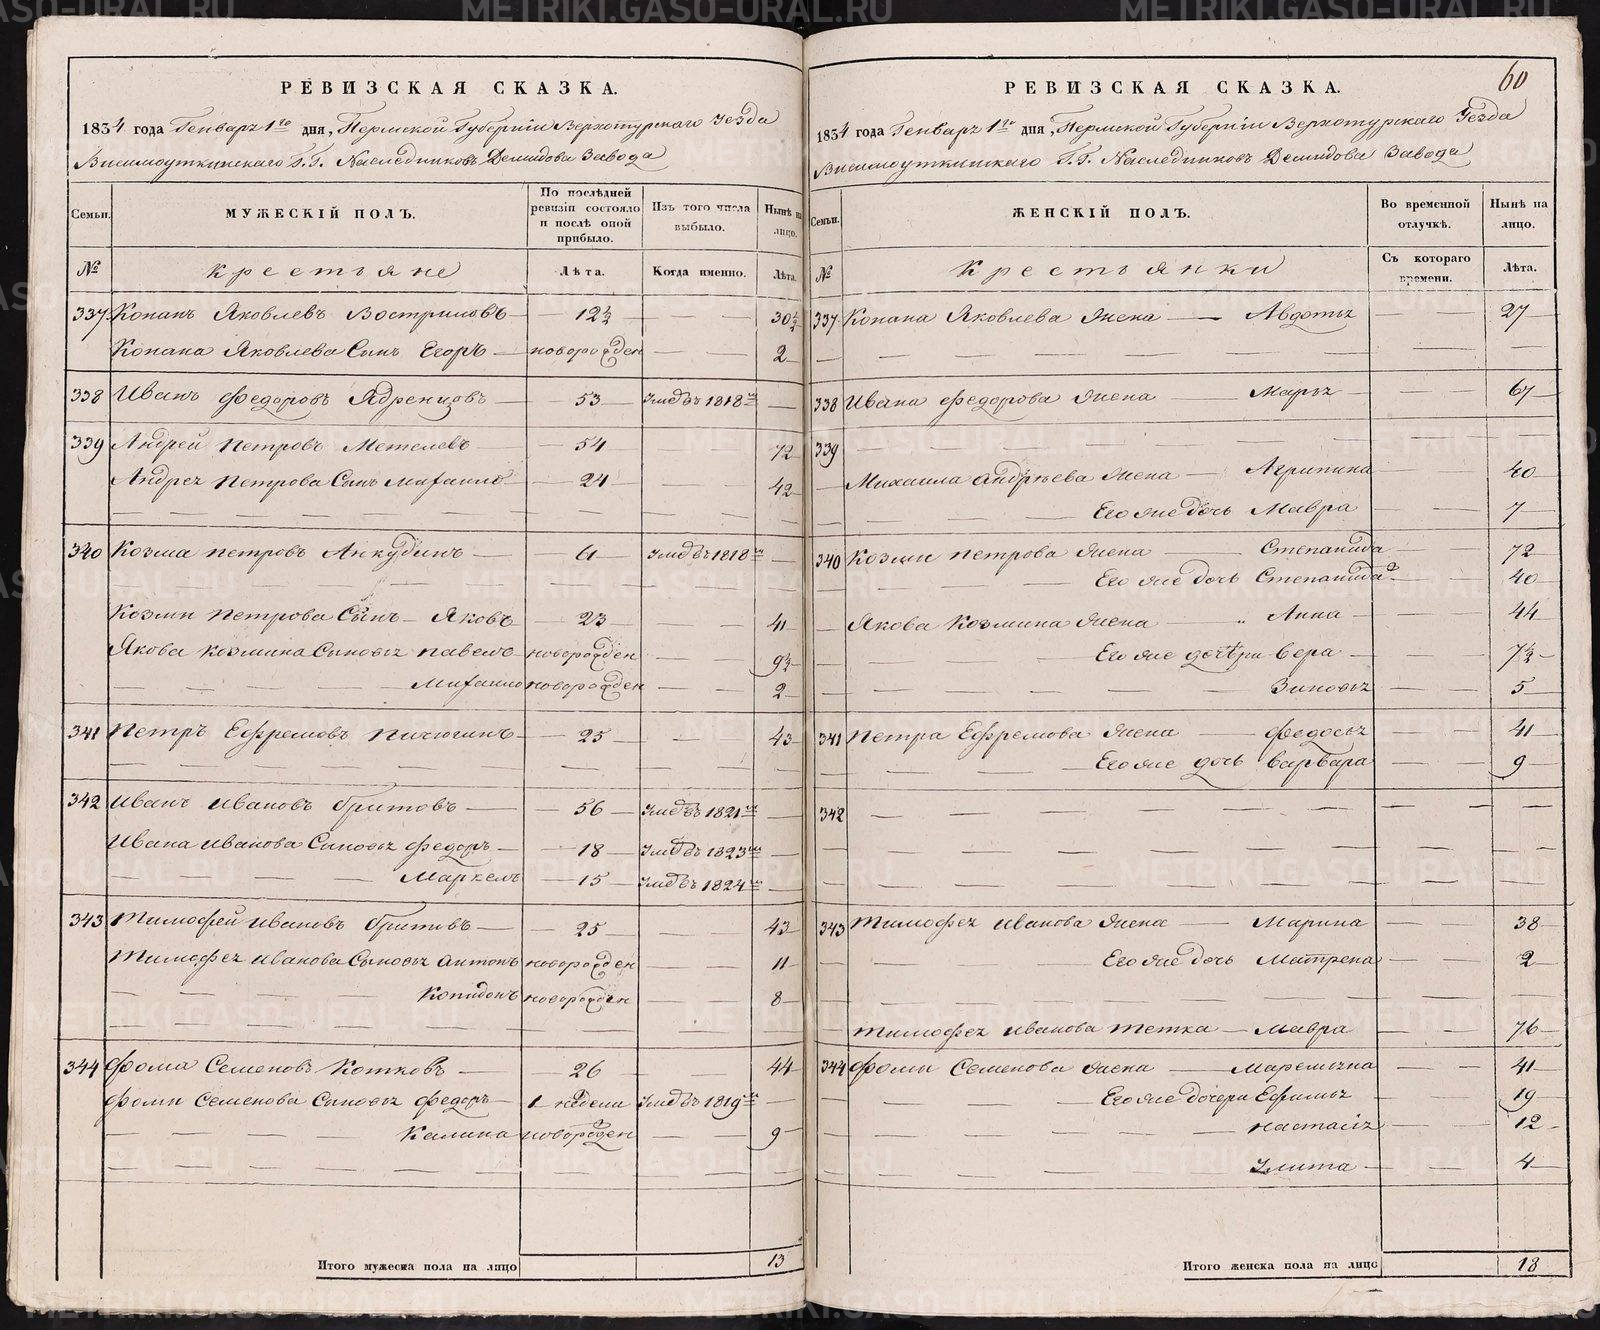 РЕВИЗСКАЯ СКАЗКА.
1834 года Генваря 1го дня, Пермской Губернiи Верхотурскаго Уезда
Висимоуткинскаго Г.Г. Наследниковъ Демидова Завода
Семьи.
МУЖЕСКIЙ ПОЛЪ.
По послѣдней ревизiи состояло и послѣ оной прибыло.
Изъ того числа выбыло.
Нынѣ на лицо.
№
крестьяне
Лѣта.
Когда именно.
Лѣта.
337 Конанъ Яковлевъ Востриковъ 12½ 30½
Конана Яковлева Сынъ Егоръ новорожден 2
338 Иванъ Федоровъ Ядренцовъ 53 Умеръ въ 1818м
339 Андрей Петровъ Метелевъ 54 72
Андрея Петрова Сынъ Михаило 24 42
340 Козма Петровъ Анкудинъ 61 Умеръ въ 1818м
Козмы Петрова Сынъ Яковъ 23 41
Якова Козмина Сыновья Павелъ новорожден 9½
Михаило новорожден 2
341 Петръ Ефремовъ Пичюгинъ 25 43
342 Иванъ Ивановъ Гритовъ 56 Умеръ въ 1821м
Ивана Иванова Сыновья Федоръ 18 Умеръ въ 1823м
Маркелъ 15 Умеръ въ 1824м
343 Тимофей Ивановъ Гритовъ 25 43
Тимофея Иванова Сыновья Антонъ новорожден 11
Копидонъ новорожден 8
344 Фома Семеновъ Котковъ 26 44
Фомы Семенова Сыновья Федоръ 1 недели Умеръ въ 1819м
Калина новорожден 9
Итого мужеска пола на лицо 13
60
РЕВИЗСКАЯ СКАЗКА.
1834 года Генваря 1го дня, Пермской Губернiи Верхотурскаго Уезда
Висимоуткинскаго Г.Г. Наследниковъ Демидова Завода
Семьи.
ЖЕНСКIЙ ПОЛЪ.
Во временной отлучкѣ.
Нынѣ на лицо.
№
Крестьянки
Съ котораго времени.
Лѣта.
337 Конана Яковлева Жена Авдотья 27
338 Ивана Федорова Жена Марья 67
339
Михаила Андрѣева Жена Агрипина 40
Его же дочь Мавра 7
340 Козмы Петрова Жена Степанида 72
Его же дочь Степанида 40
Якова Козмина Жена Анна 44
Его же дочери Вера 7½
Зиновья 5
341 Петра Ефремова Жена Федосья 41
Его же дочь Варвара 9
342
343 Тимофея Иванова Жена Марина 38
Его же дочь Матрена 2
Тимофея Иванова тетка Мавра 76
344 Фомы Семенова Жена Маремьяна 41
Его же дочери Ефимья 19
Настасья 12
Улита 4
Итого женска пола на лицо 18